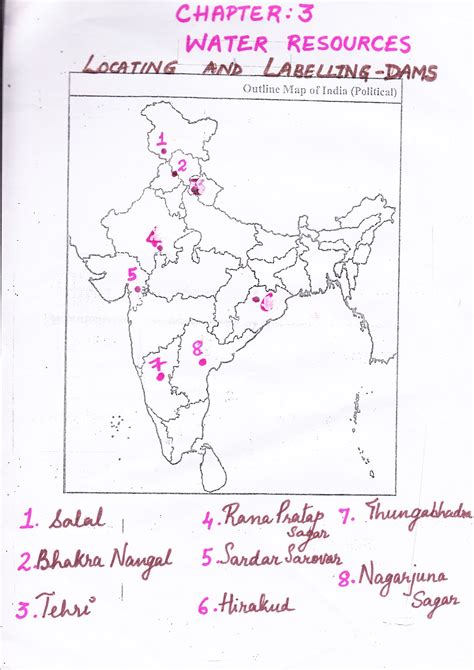 CHAPTER: 3
WATER RESOURCES
LOCATING AND LABELLING-DAMS
Outline Map of India (Political)
1
2
3
4
5
6
8
7
1. Salal
2. Bhakra Nangal
3. Tehri
4. Rana Pratap
Sagar
5. Sardar Sarovar
6. Hirakud
7. Thungabhadra
8. Nagarjuna
Sagar